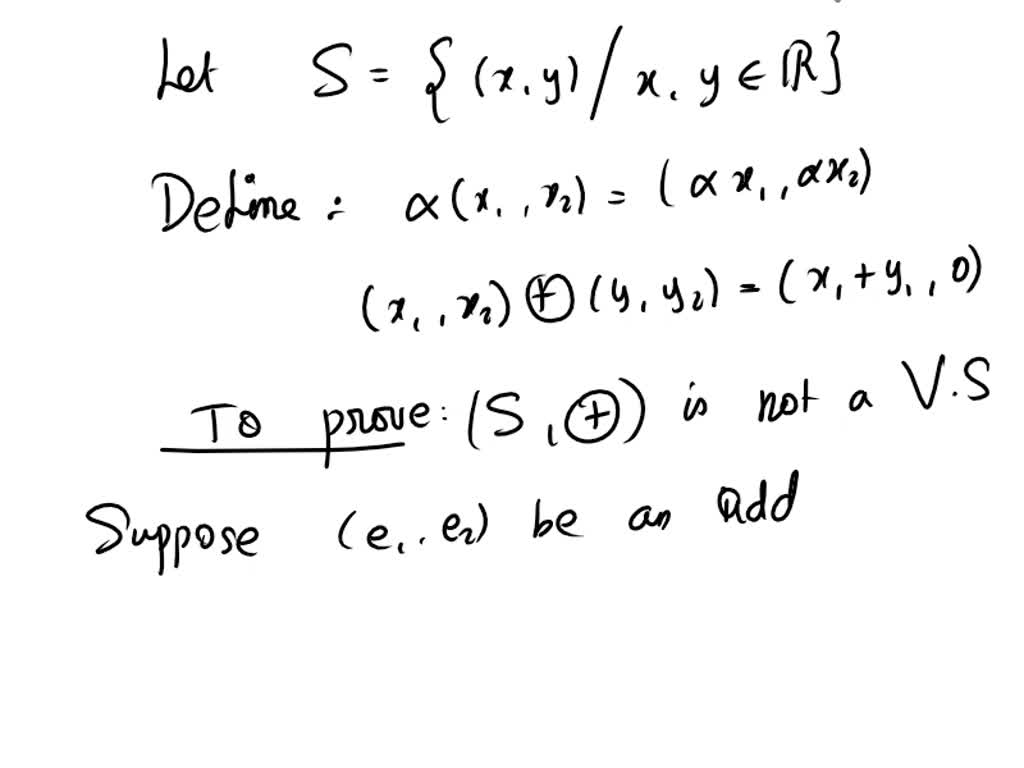 Let S = { (x, y) / x, y ∈ ℝ }
Define : α(x₁, x₂) = (αx₁, αx₂)
(x₁, x₂) ⊕ (y, y₂) = (x₁ + y₁, 0)
To prove: (S, ⊕) is not a V.S
Suppose (e₁, e₂) be an add